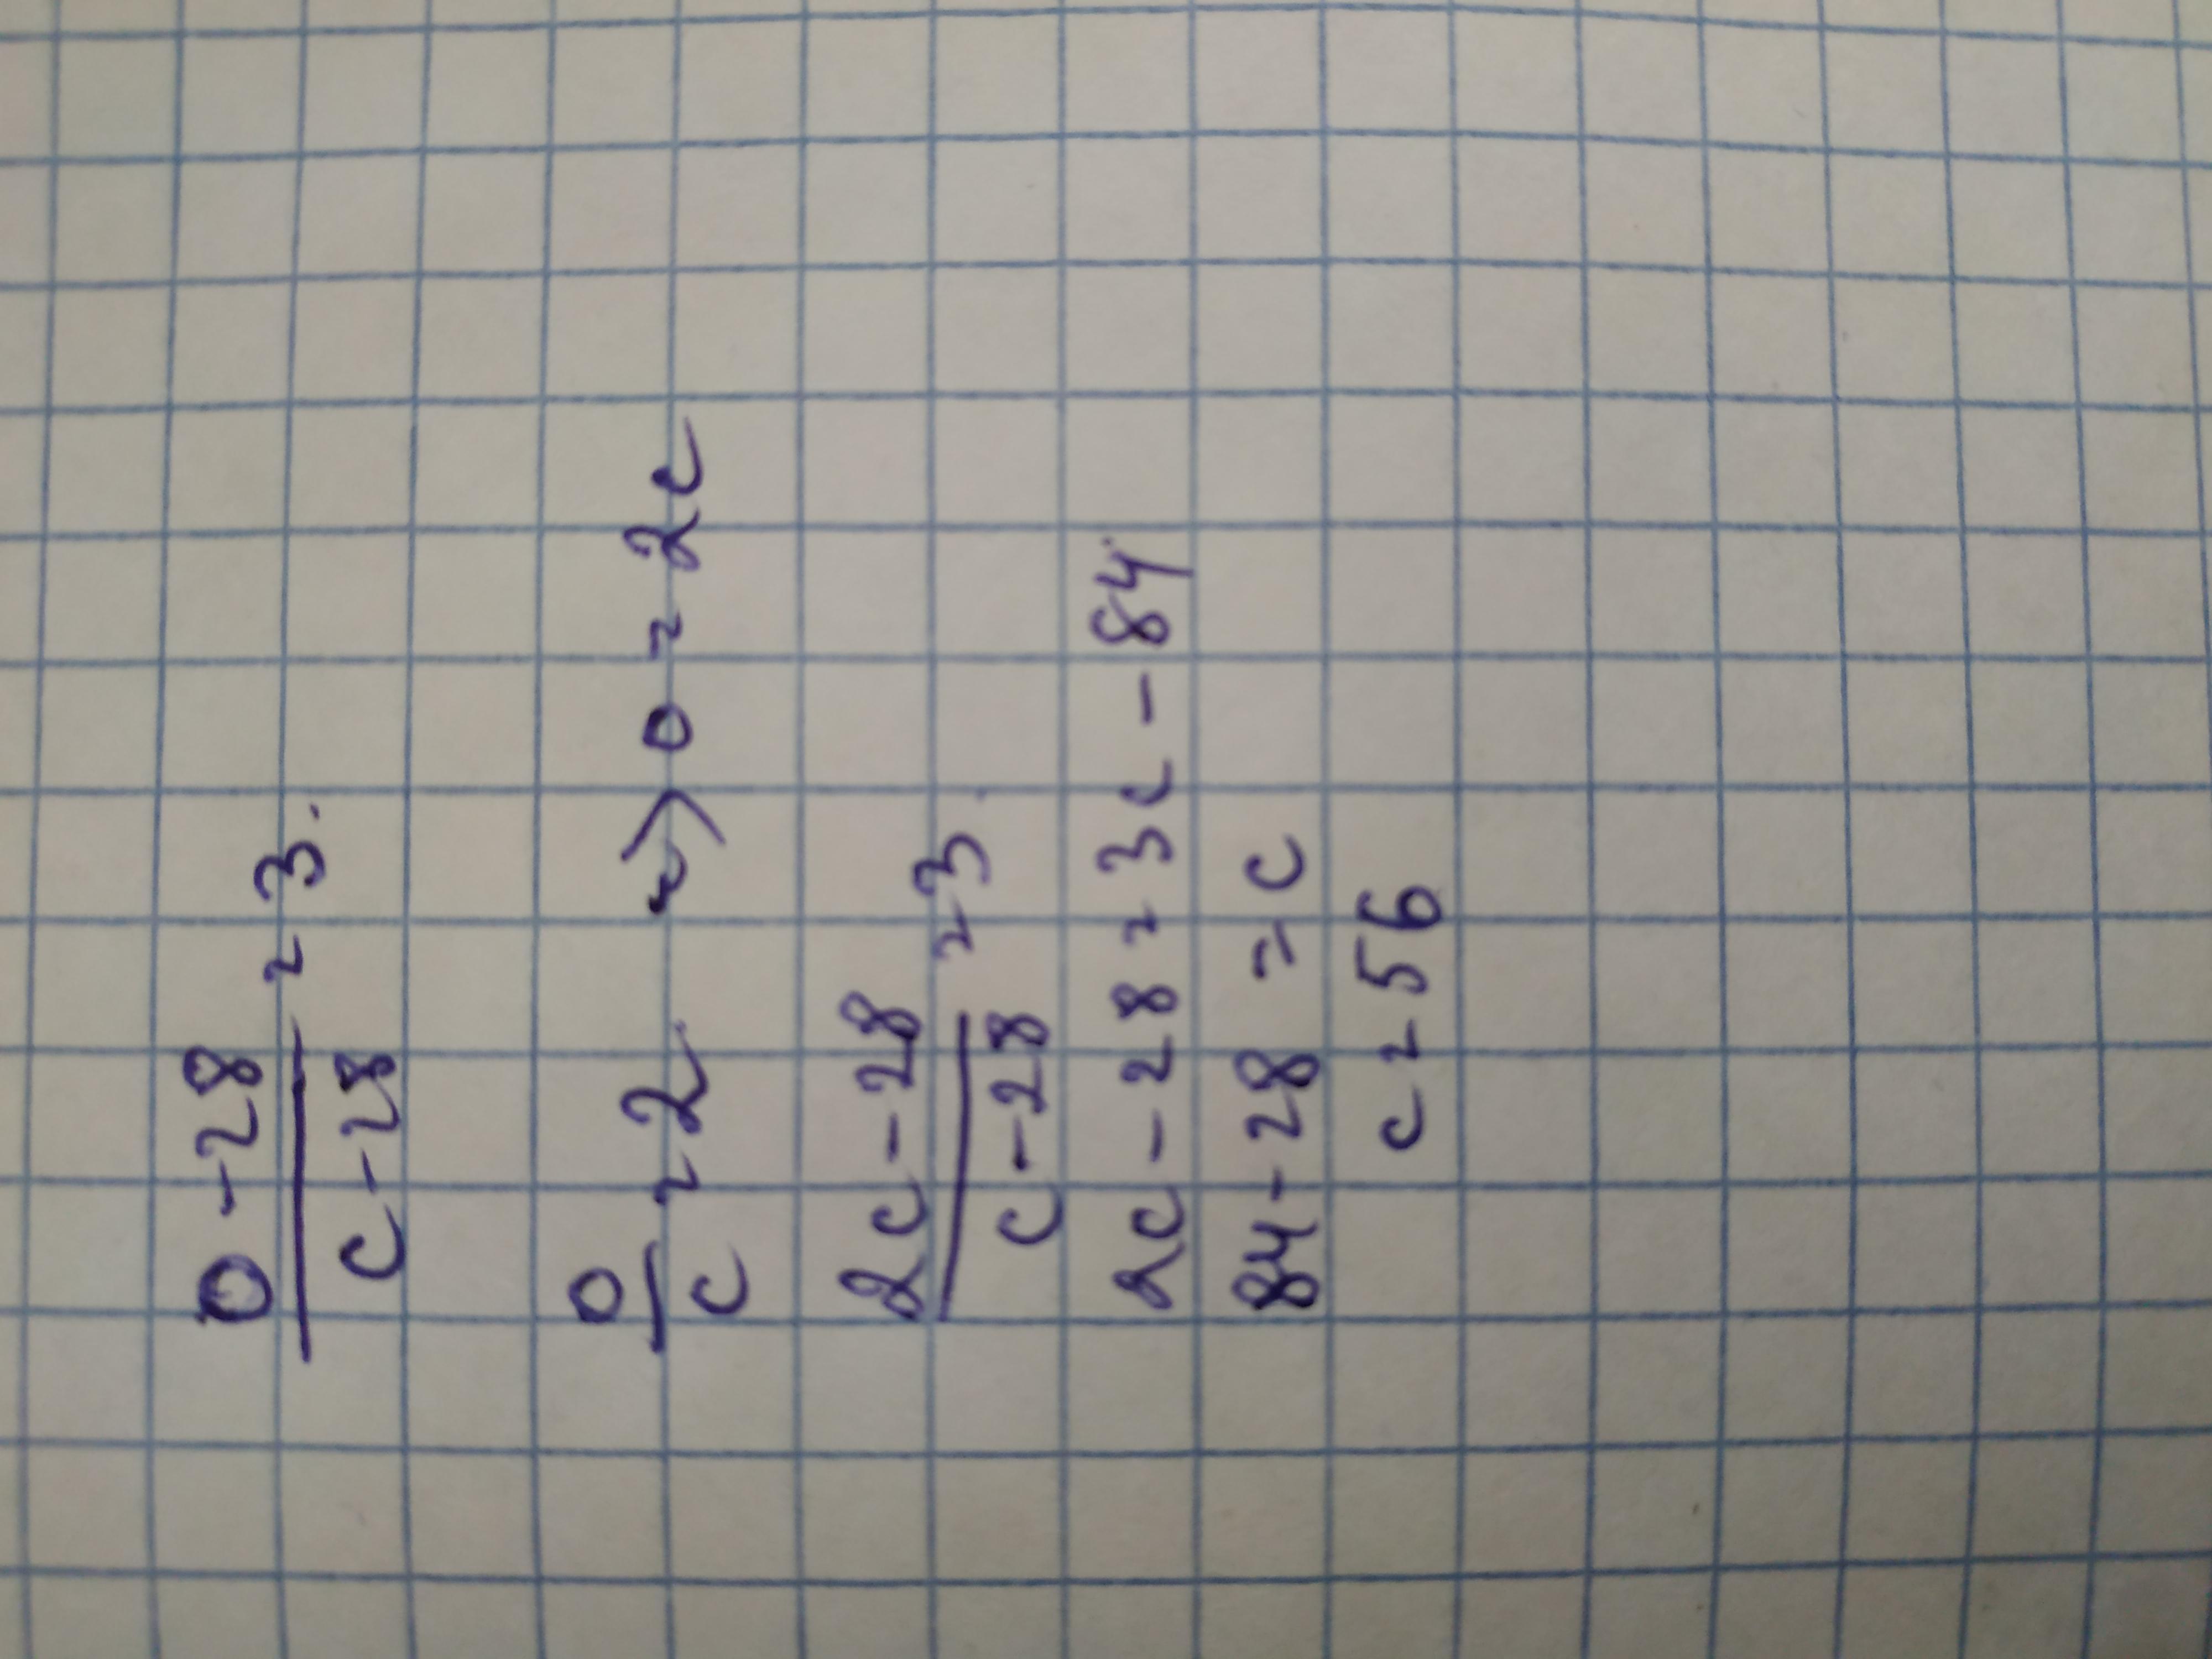 0 - 28 / c - 28 = 3.
0 / c = 2 => 0 = 2c
2c - 28 / c - 28 = 3.
2c - 28 = 3c - 84
84 - 28 = c
c = 56